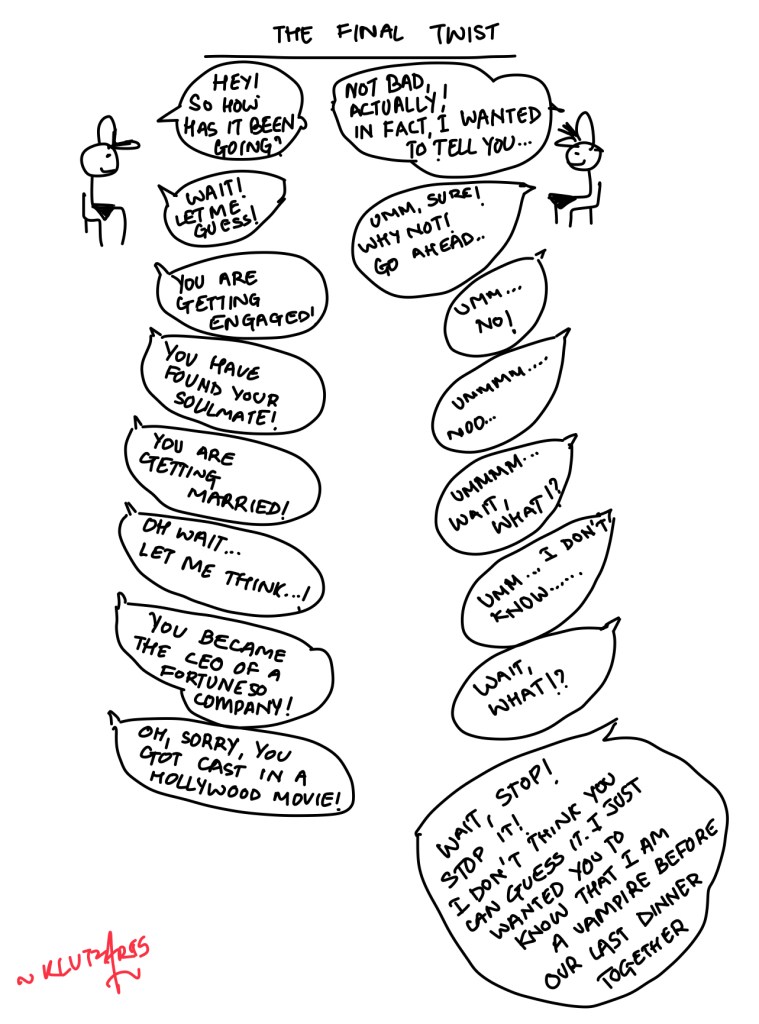 THE FINAL TWIST
HEY!
SO HOW
HAS IT BEEN
GOING?
NOT BAD,
ACTUALLY!
IN FACT, I WANTED
TO TELL YOU...
WAIT!
LET ME
GUESS!
UMM, SURE!
WHY NOT!
GO AHEAD..
YOU ARE
GETTING
ENGAGED!
UMM...
NO!
YOU HAVE
FOUND YOUR
SOULMATE!
UMMMM....
NOO...
YOU ARE
GETTING
MARRIED!
UMMMM...
WAIT,
WHAT!?
OH WAIT...
LET ME THINK...!
UMM.... I DON'T!
KNOW......
YOU BECAME
THE CEO OF A
FORTUNE50
COMPANY!
WAIT,
WHAT!?
OH, SORRY, YOU
GOT CAST IN A
HOLLYWOOD MOVIE!
WAIT, STOP!
STOP IT!
I DON'T THINK YOU
CAN GUESS IT. I JUST
WANTED YOU TO
KNOW THAT I AM
A VAMPIRE BEFORE
OUR LAST DINNER
TOGETHER
~ KLUTZARSS